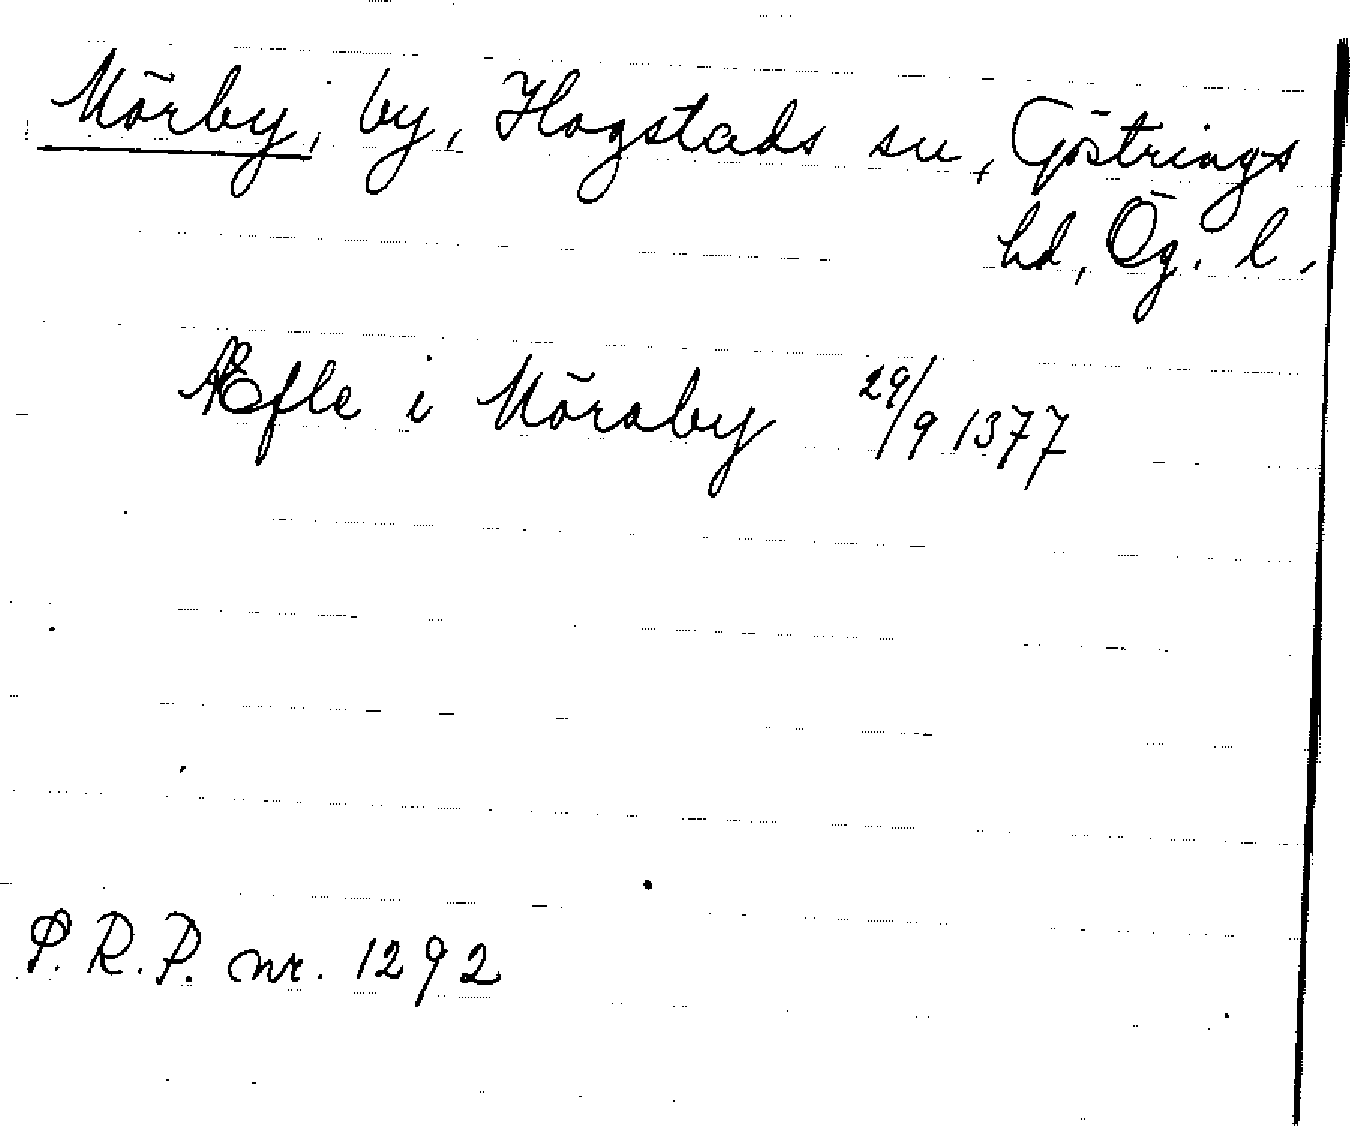 Mörby, by, Hogstads sn, Göstrings
hd, Ög. l.
Æfle i Möroby 29/9 1377
P.R.P. nr. 1292